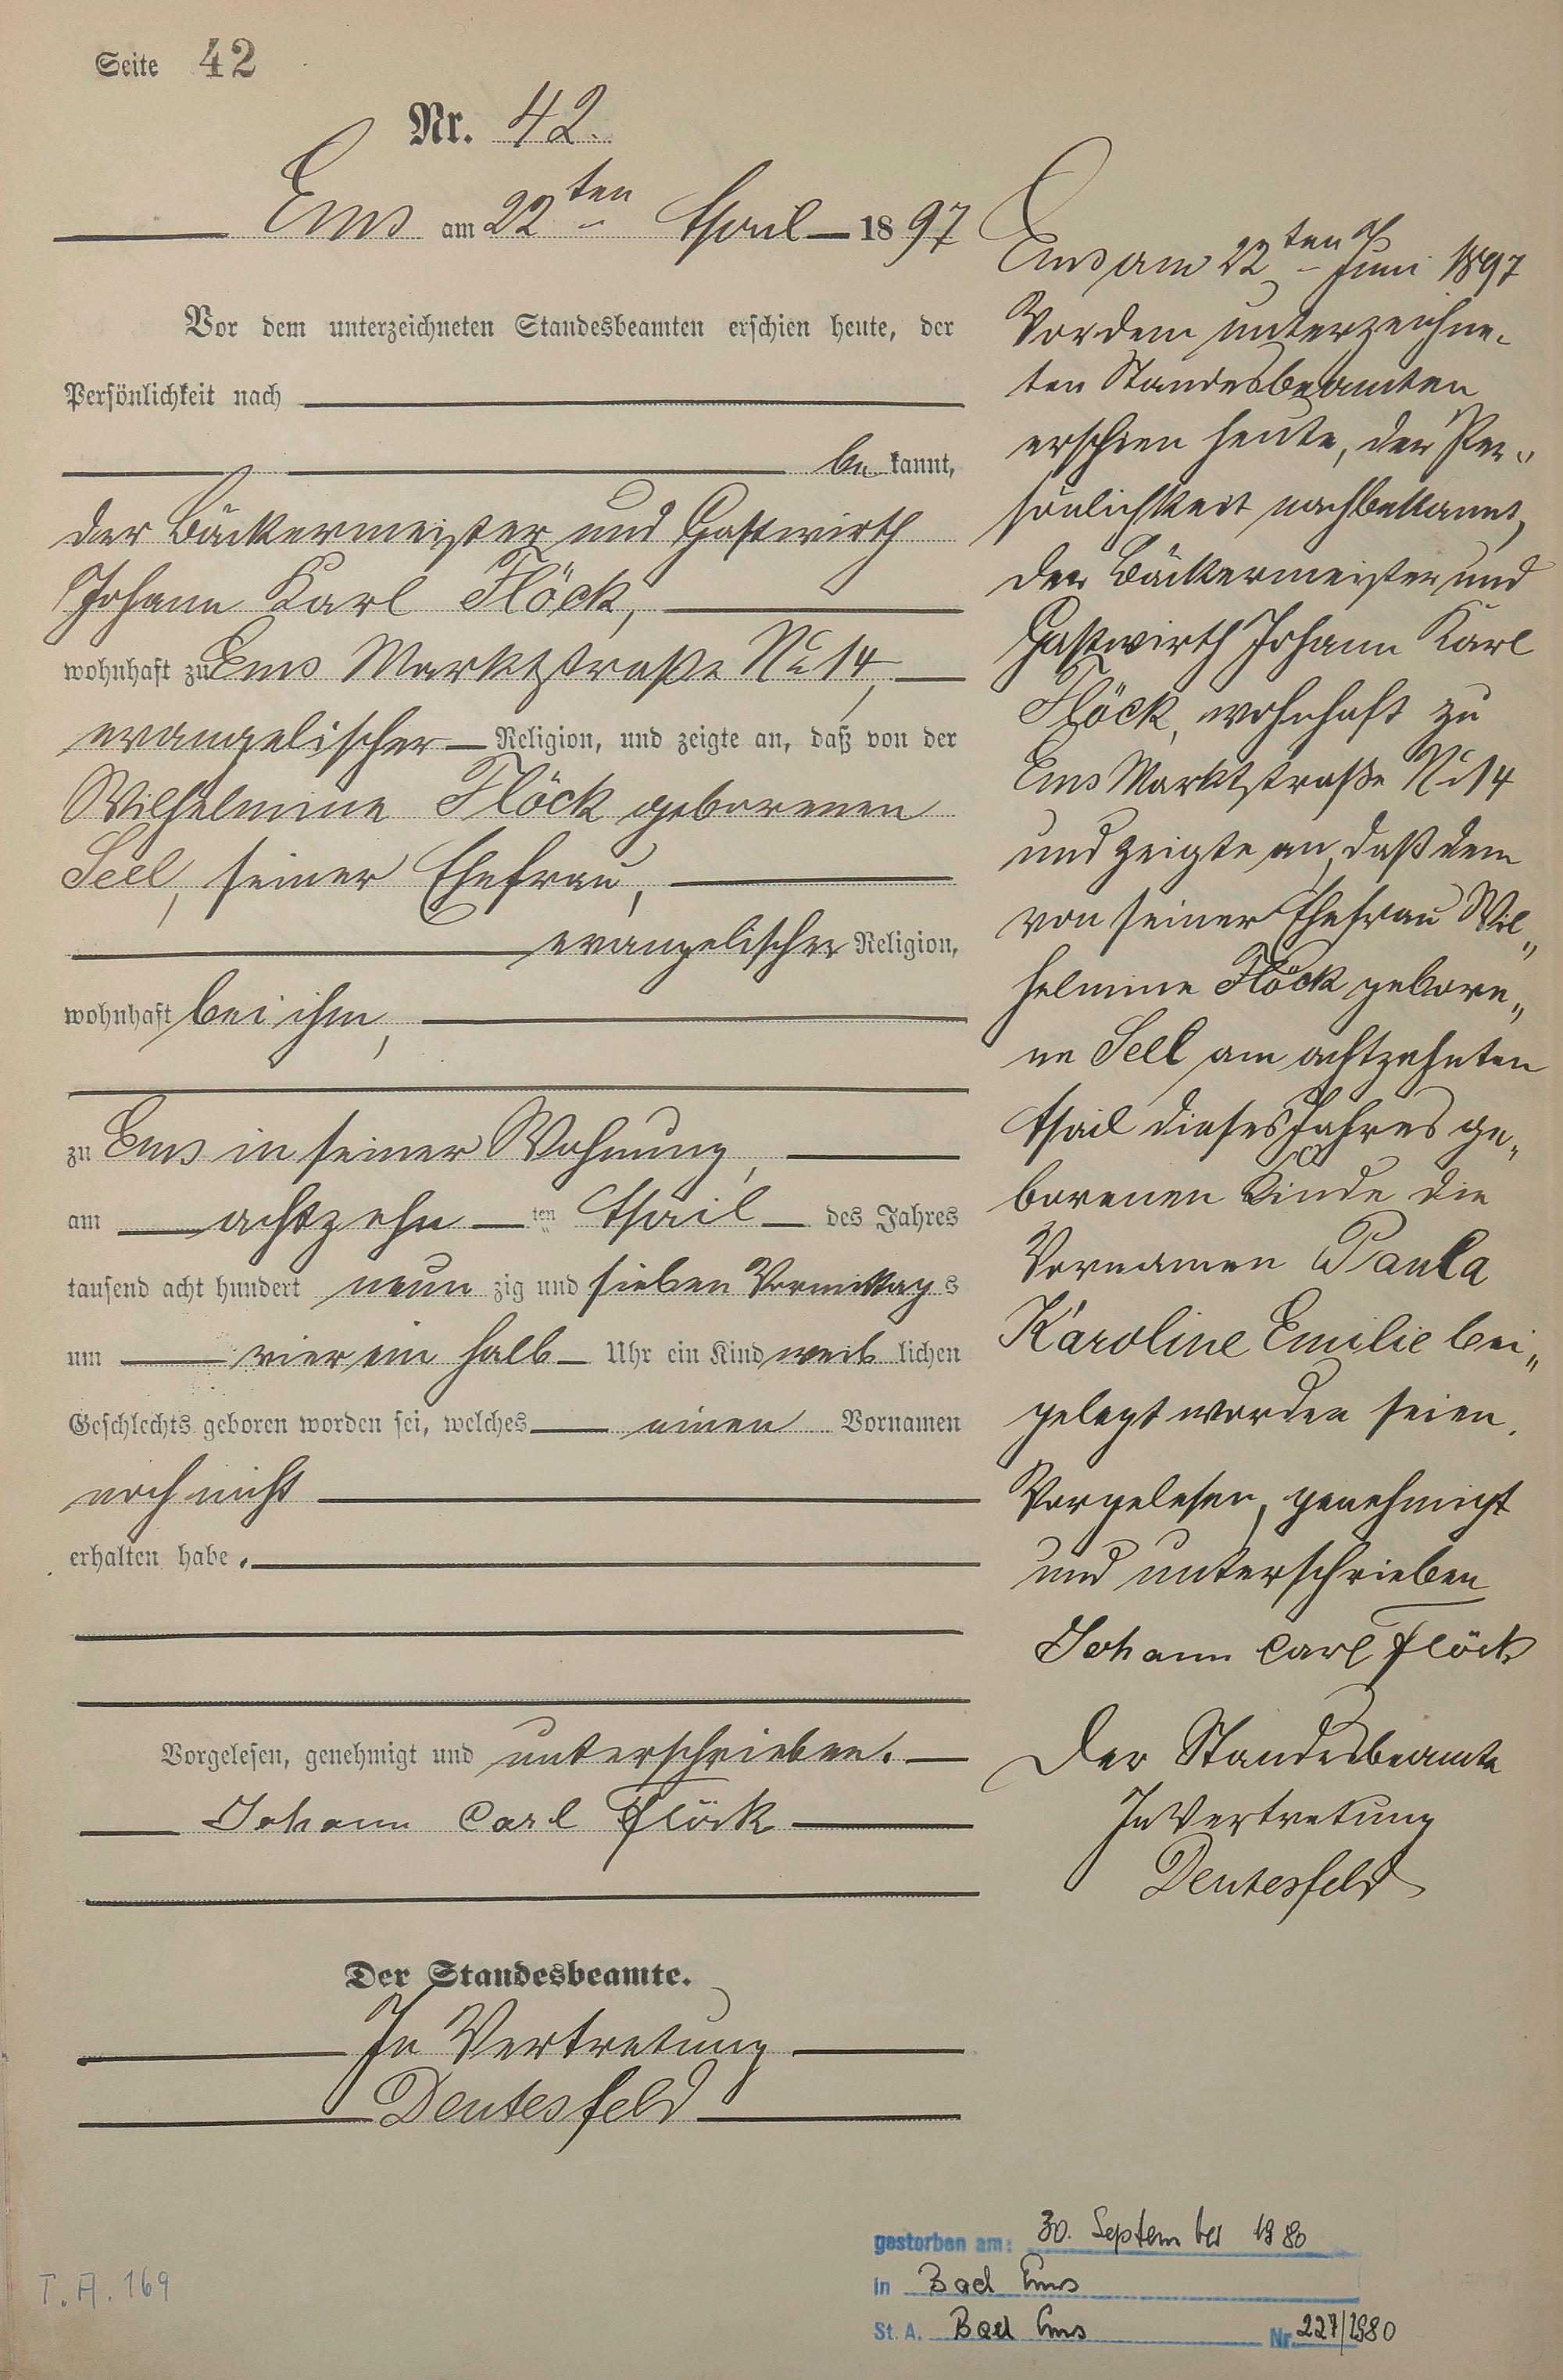 Seite 42
Nr. 42.
Ems am 22ten April 1897
Vor dem unterzeichneten Standesbeamten erschien heute, der
Persönlichkeit nach
bekannt,
der Bäckermeister und Gastwirth
Johann Karl Flöck,
wohnhaft zu Ems Marktstraße No 14,
evangelischer Religion, und zeigte an, daß von der
Wilhelmine Flöck geborenen
Seel, seiner Ehefrau,
evangelischer Religion,
wohnhaft bei ihm,
zu Ems in seiner Wohnung,
am achtzehn ten April des Jahres
tausend acht hundert neunzig und sieben Vormittags
um vier ein halb Uhr ein Kind weiblichen
Geschlechts geboren worden sei, welches einen Vornamen
noch nicht
erhalten habe.
Vorgelesen, genehmigt und unterschrieben.
Johann Carl Flöck
Der Standesbeamte.
In Vertretung
Deutesfeld
Ems am 22ten Juni 1897
Vor dem unterzeichne-
ten Standesbeamten
erschien heute, der Per-
sönlichkeit nach bekannt,
der Bäckermeister und
Gastwirth Johann Karl
Flöck, wohnhaft zu
Ems Marktstraße No 14
und zeigte an, daß dem
von seiner Ehefrau Wil„
helmine Flöck gebore„
ne Seel am achtzehnten
April dieses Jahres ge„
borenen Kinde die
Vornamen Paula
Karoline Emilie bei„
gelegt worden seien.
Vorgelesen, genehmigt
und unterschrieben
Johann Carl Flöck
Der Standesbeamte
In Vertretung
Deutesfeld
gestorben am: 30. September 1980
in Bad Ems
St. A. Bad Ems Nr. 227/1980
T.A. 169